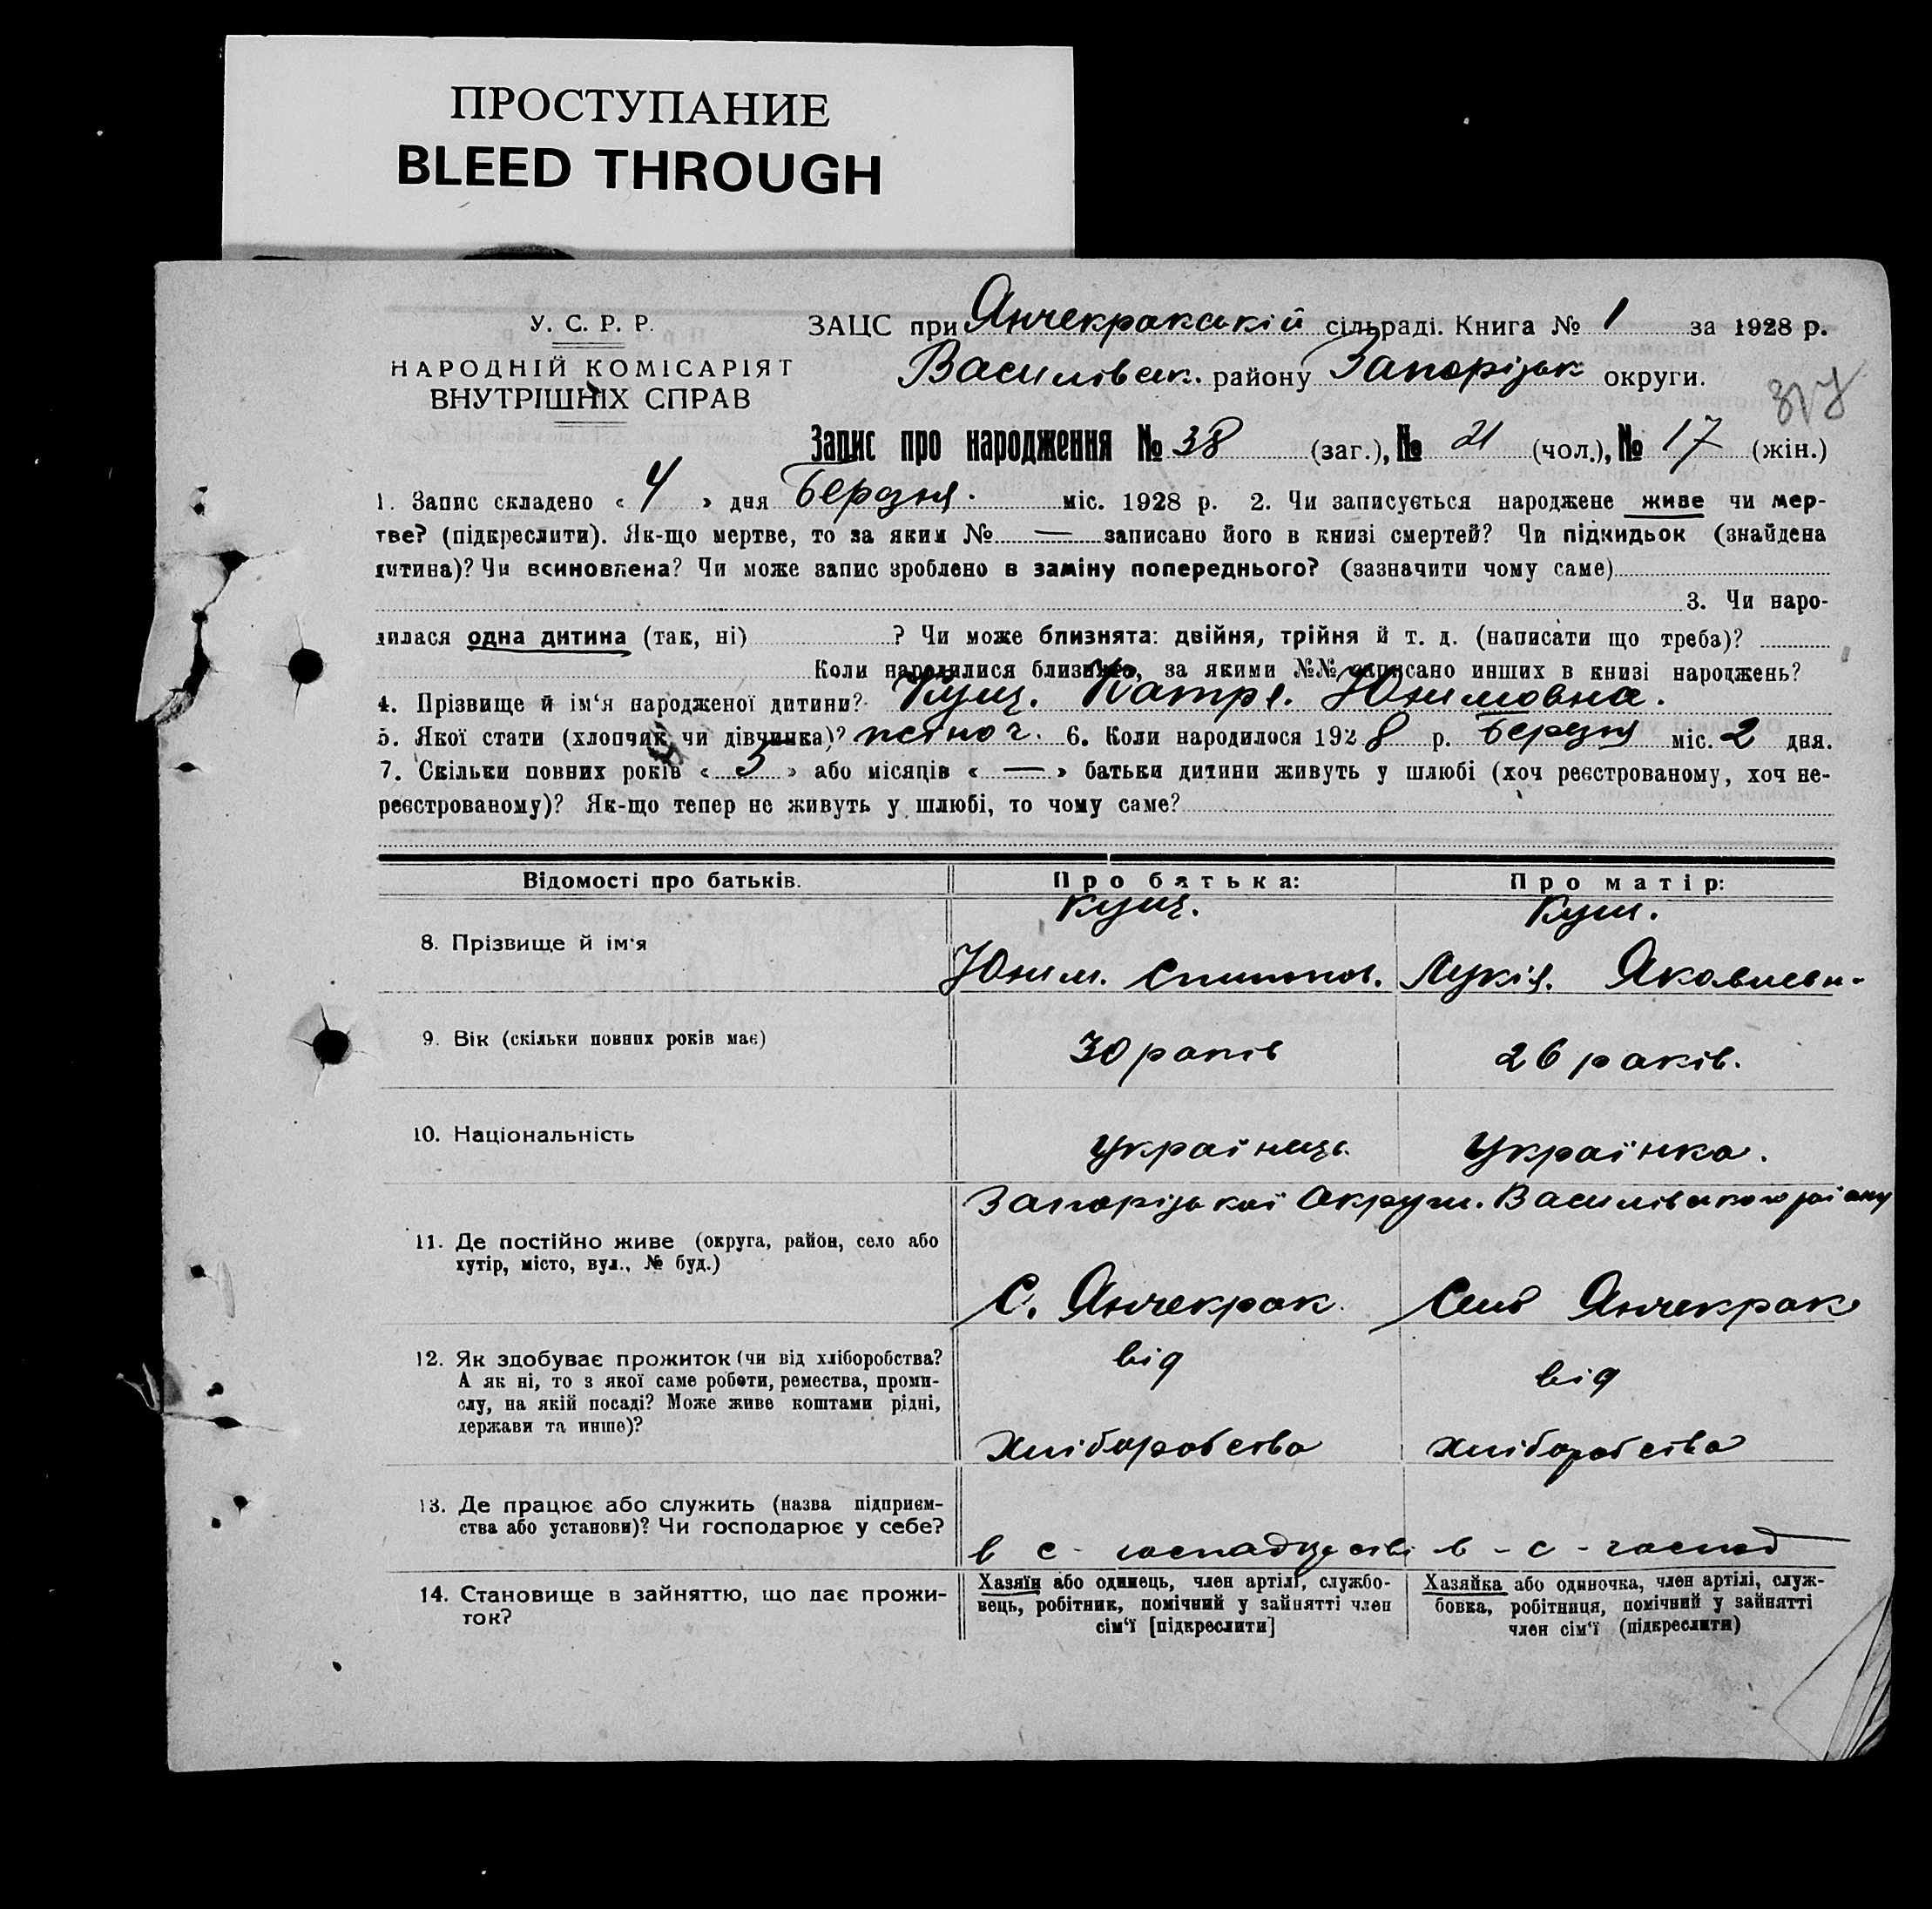 ПРОСТУПАНИЕ
BLEED THROUGH
У. С. Р. Р.
НАРОДНІЙ КОМІСАРІЯТ
ВНУТРІШНІХ СПРАВ
ЗАЦС при Янчекракській сільраді. Книга № 1 за 1928 р.
Василівськ. району Запорізьк округи.
Запис про народження № 38 (заг.), № 21 (чол.), № 17 (жін.)
1. Запис складено « 4 » дня Березня. міс. 1928 р. 2. Чи записується народжене живе чи мер-
тве? (підкреслити). Як-що мертве, то за яким № — записано його в книзі смертей? Чи підкидьок (знайдена
дитина)? Чи всиновлена? Чи може запис зроблено в заміну попереднього? (зазначити чому саме)
3. Чи наро-
дилася одна дитина (так, ні) ? Чи може близнята: двійня, трійня й т. д. (написати що треба)?
Коли народилися близнята, за якими №№ записано инших в книзі народжень?
4. Прізвище й ім‘я народженої дитини? Кущ. Катря. Юхимовна.
5. Якої стати (хлопчик чи дівчинка)? жіноч. 6. Коли народилося 1928 р. Березня міс. 2 дня.
7. Скільки повних років « 5 » або місяців « — » батьки дитини живуть у шлюбі (хоч реєстрованому, хоч не-
реєстрованому)? Як-що тепер не живуть у шлюбі, то чому саме?
Відомості про батьків. Про батька: Про матір:
8. Прізвище й ім‘я Кущ. Кущ.
Юхим. Лукія. Яковлевн.
9. Вік (скільки повних років має) 30 років 26 років.
10. Національність Українець Українка.
Запорізької Округи. Василівського району
11. Де постійно живе (округа, район, село або
хутір, місто, вул., № буд.)
С. Янчекрак. Село Янчекрак
12. Як здобуває прожиток (чи від хліборобства? від від
А як ні, то з якої саме роботи, ремества, проми-
слу, на якій посаді? Може живе коштами рідні,
держави та инше)?
хліборобства хліборобства
13. Де працює або служить (назва підприєм-
ства або установи)? Чи господарює у себе?
в с - господарстві в - с - господ
14. Становище в зайняттю, що дає прожи-
ток?
Хазяїн або одинець, член артілі, службо-
вець, робітник, помічний у зайнятті член
сім‘ї [підкреслити]
Хазяйка або одиночка, член артілі, служ-
бовка, робітниця, помічний у зайнятті
член сім‘ї (підкреслити)